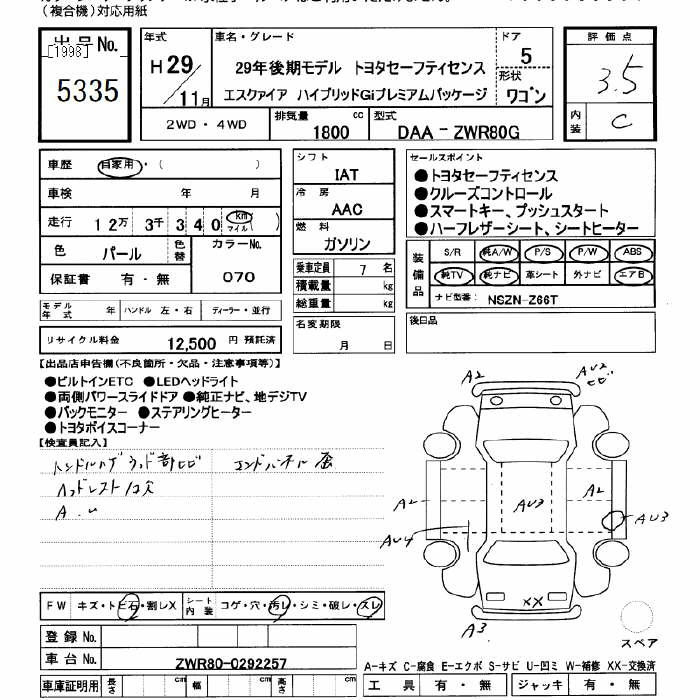 （複合機）対応用紙
出品No.
[1998]
5335
年式
H29/11月
車名・グレード
29年後期モデル トヨタセーフティセンス
エスクァイア ハイブリッドGiプレミアムパッケージ
ドア
5
形状
ワゴン
評価点
3.5
内装
C
2WD・4WD
排気量
1800 cc
型式
DAA-ZWR80G
車歴 自家用・( )
車検 年 月
走行 12万 3千 340 km マイル ( )
色 パール
色替
カラーNo.
070
保証書 有・無
シフト
IAT
冷房
AAC
燃料
ガソリン
乗車定員 7 名
積載量 kg
総重量 kg
セールスポイント
●トヨタセーフティセンス
●クルーズコントロール
●スマートキー、プッシュスタート
●ハーフレザーシート、シートヒーター
装備品
S/R 純A/W P/S P/W ABS
純TV 純ナビ 革シート 外ナビ エアB
ナビ型番: NSZN-Z66T
モデル年式 年 ハンドル 左・右 ディーラー・並行
リサイクル料金 12,500 円 預託済
名変期限
月 日
後日品
【出品店申告欄(不良箇所・欠品・注意事項等)】
●ビルトインETC ●LEDヘッドライト
●両側パワースライドドア ●純正ナビ、地デジTV
●バックモニター ●ステアリングヒーター
●トヨタボイスコーナー
【検査員記入】
ヘッドレスト1欠
A.U
A2
AU2
ヒビ
A2
AU3
A2
AU3
AU4
XX
A3
スペア
FW キズ・トビ石・割レX
2
シート内装 コゲ・穴・汚レ・シミ・破レ・スレ
登録No.
車台No. ZWR80-0292257
A-キズ C-腐食 E-エクボ S-サビ U-凹ミ W-補修 XX-交換済
車庫証明用 長さ cm 幅 cm 高さ cm
工具 有・無 ジャッキ 有・無